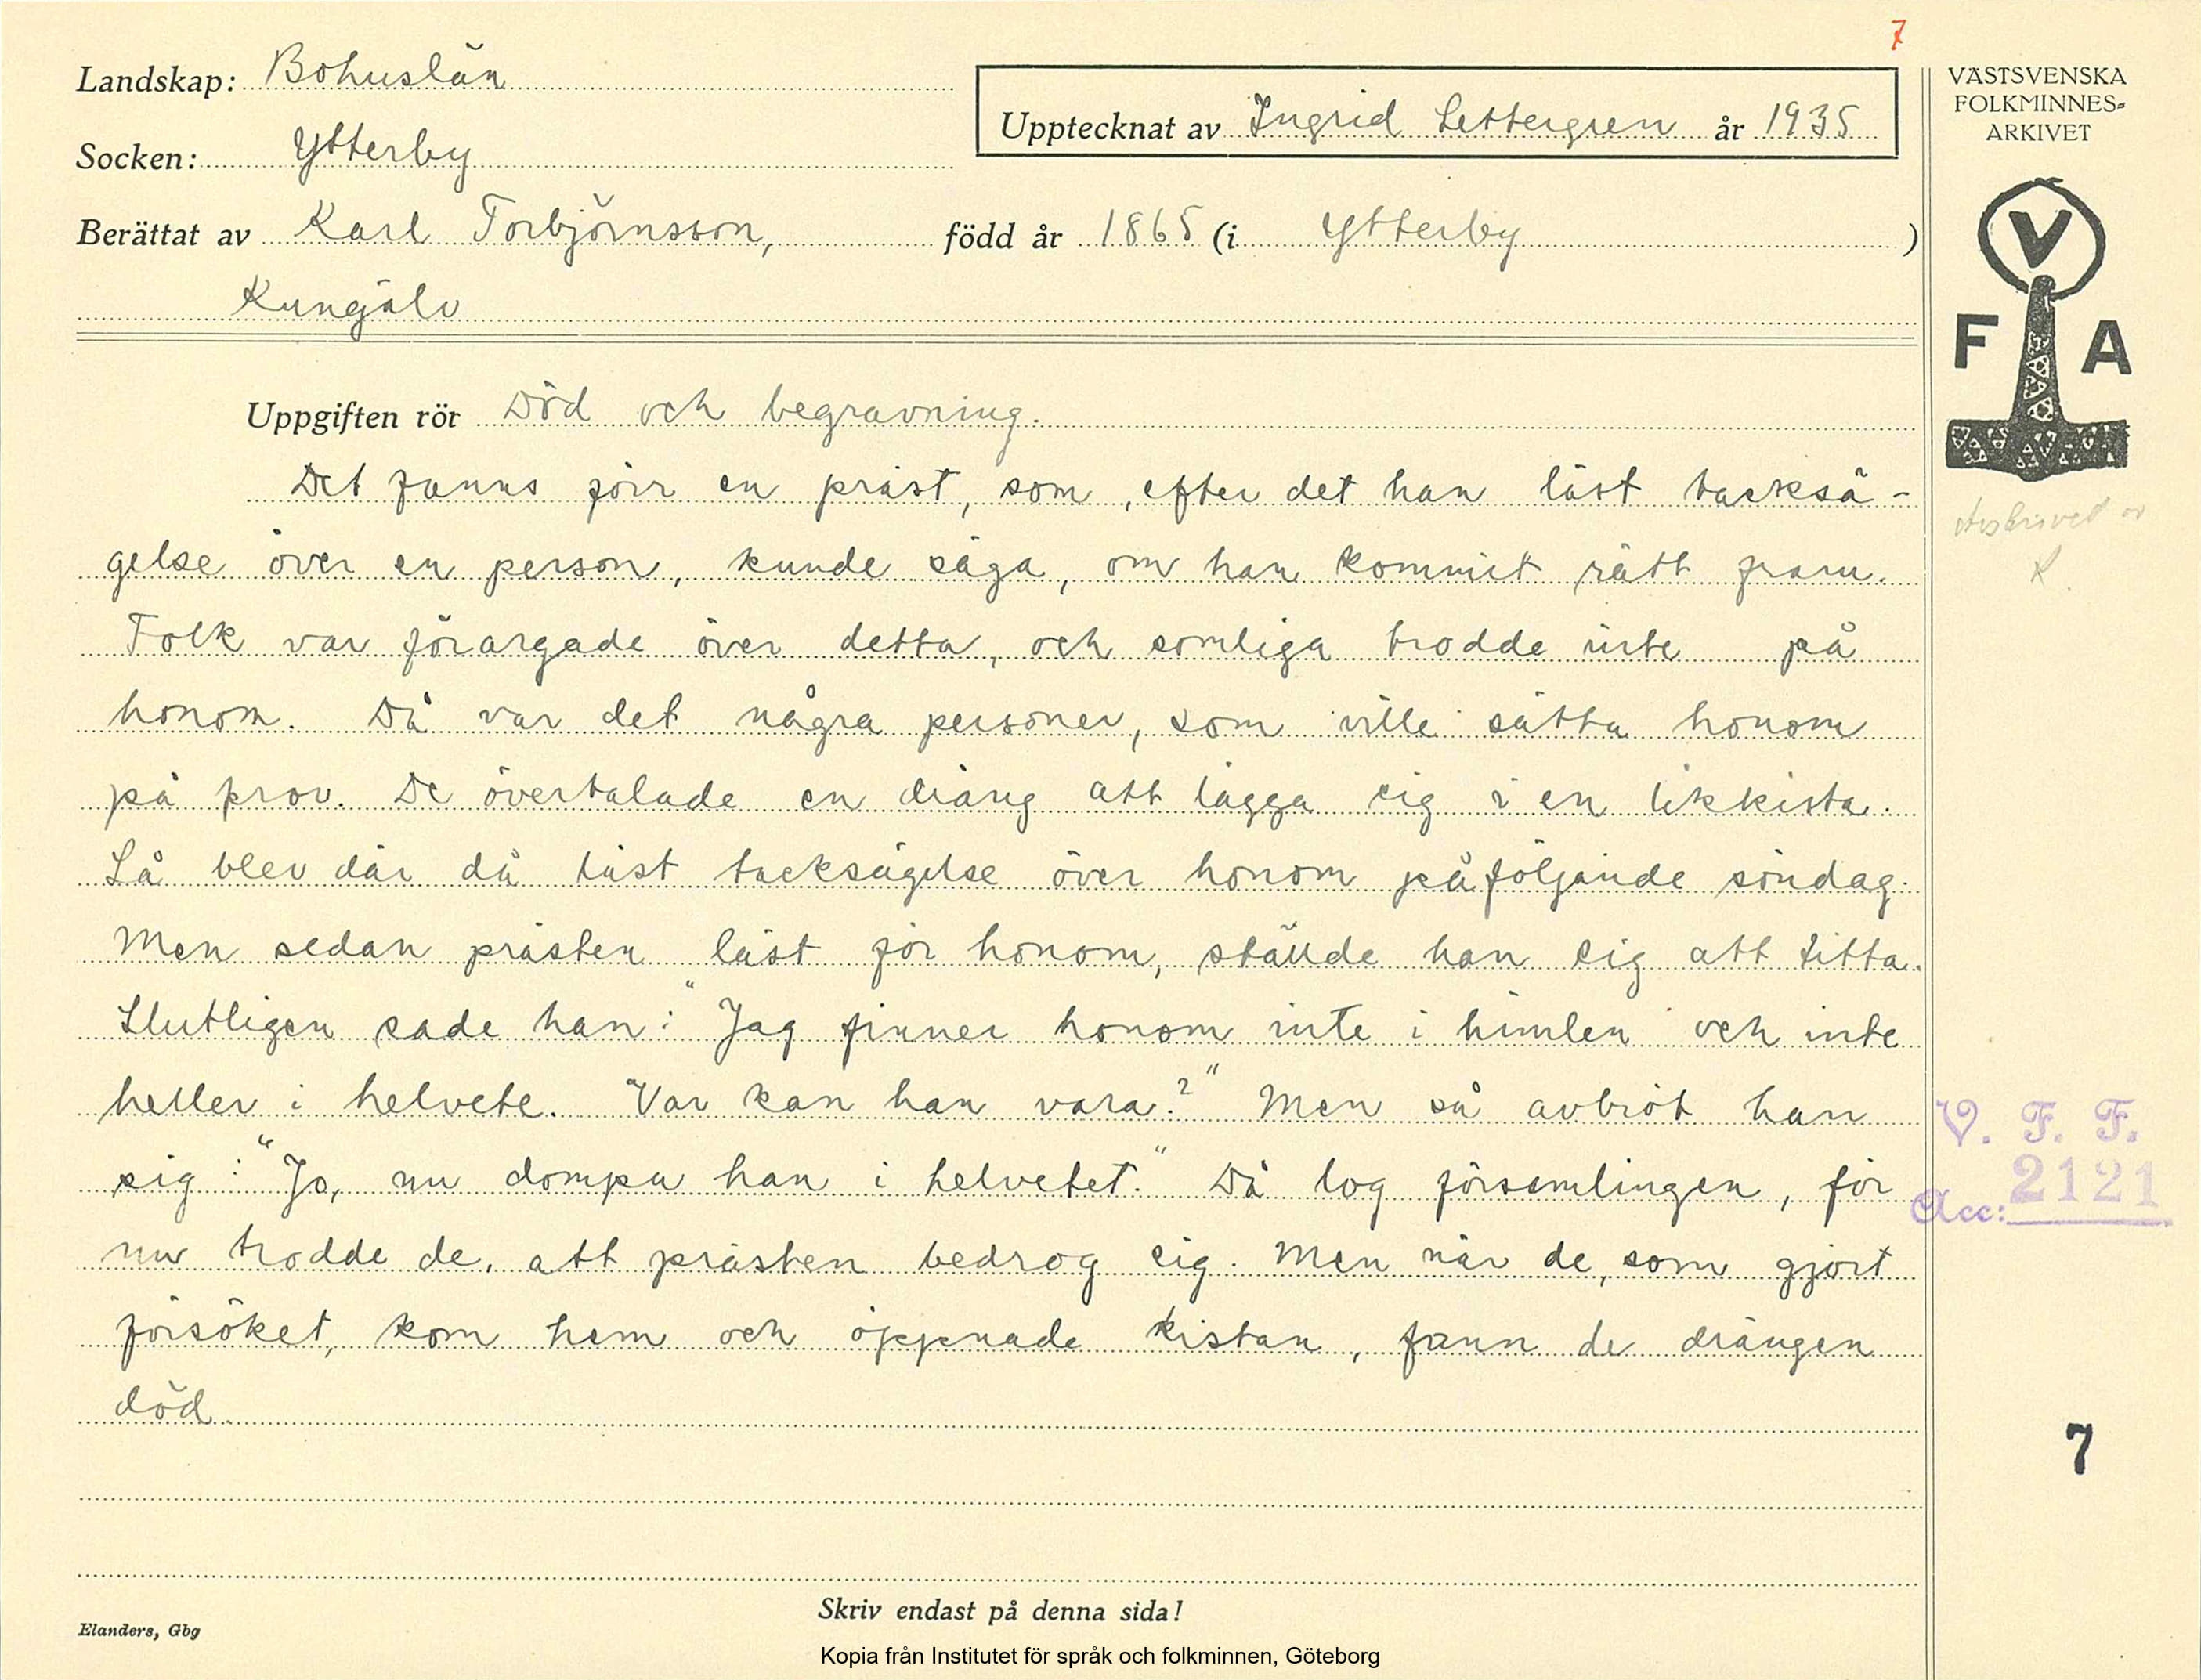 7
Landskap: Bohuslän
Upptecknat av Ingrid Settergren år 1935
Socken: Ytterby
Berättat av Karl Torbjörnsson, född år 1865 (i Ytterby)
Kungälv
VÄSTSVENSKA
FOLKMINNES-
ARKIVET
V
F A
Uppgiften rör Död och begravning.
Det fanns förr en präst, som, efter det han läst tacksä-
gelse över en person, kunde säga, om han kommit rätt fram.
Folk var förargade över detta, och somliga trodde inte på
honom. Då var det några personer, som ville sätta honom
på prov. De övertalade en dräng att lägga sig i en likkista.
Så blev där då läst tacksägelse över honom påföljande söndag.
Men sedan prästen läst för honom, ställde han sig att titta.
Slutligen sade han: "Jag finner honom inte i himlen och inte
heller i helvete. Var kan han vara?" Men så avbröt han
sig: "Jo, nu dompa han i helvetet." Då log församlingen, för
nu trodde de, att prästen bedrog sig. Men när de, som gjort
försöket, kom hem och öppnade kistan, fann de drängen
död.
V. F. F.
Acc: 2121
7
Skriv endast på denna sida!
Elanders, Gbg
Kopia från Institutet för språk och folkminnen, Göteborg